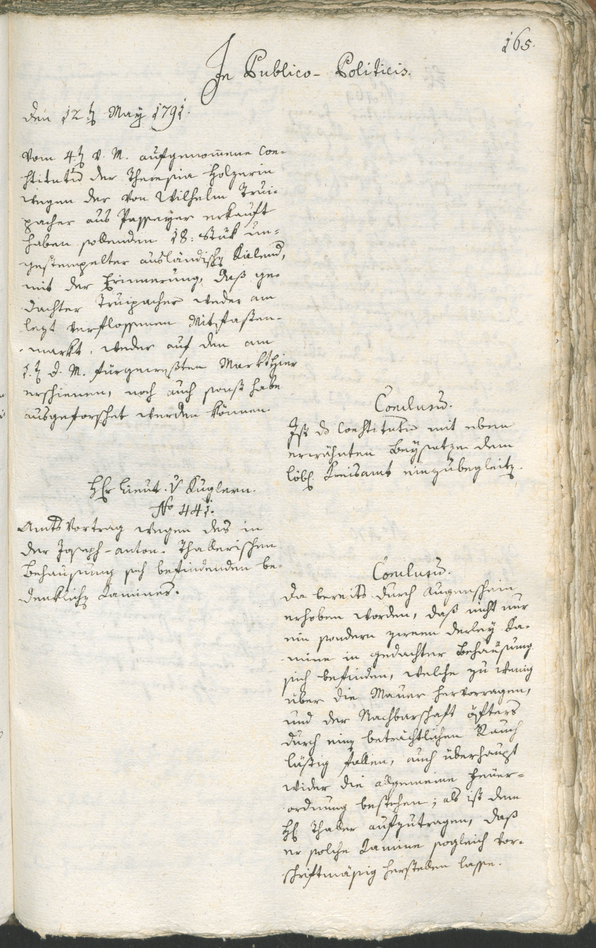 165.
In Publico-Politicis.
den 12t May 1791.
Vom 4t d. M. aufgenommene Con-
stitutum der Theresia Holzerin
wegen der von Wilhelm Trui-
pacher aus Passeyer erkauft
haben sollenden 18. Stuk un-
gestempelter ausländischen Kalend,
mit der Erinnerung, daß ge-
dachter Truipacher weder am
lezt verflossenen Mitfasten-
markt, weder auf dem am
1.t d. M. fürgewesten Markt hier
erschienen, noch auch sonst habe
ausgeforschet werden können.
Conclusum.
Ist das Constitutum mit oben
erwähnten Beysatze dem
löbl Kreisamt einzubegleiten.
Hr Lieut. v Kuglern.
No 441.
Amts Vortrag wegen des in
der Joseph-anton-Thalerischen
Behausung sich befindenden be-
denklichen Camines.
Conclusum.
Da bereits durch Augenschein
erhoben worden, daß nicht nur
ein sondern zween derley Ca-
mine in gedachter Behausung
sich befinden, welche zu wenig
über die Mauer hervorragen,
und der Nachbarschaft öfters
durch einen beträchtlichen Rauch
lästig fallen, auch überhaupt
wider die allgemeine Feuer-
ordnung bestehen; als ist dem
Hr Thaler aufzutragen, daß
er solche Camine sogleich vor-
schriftmäßig herstellen lasse.